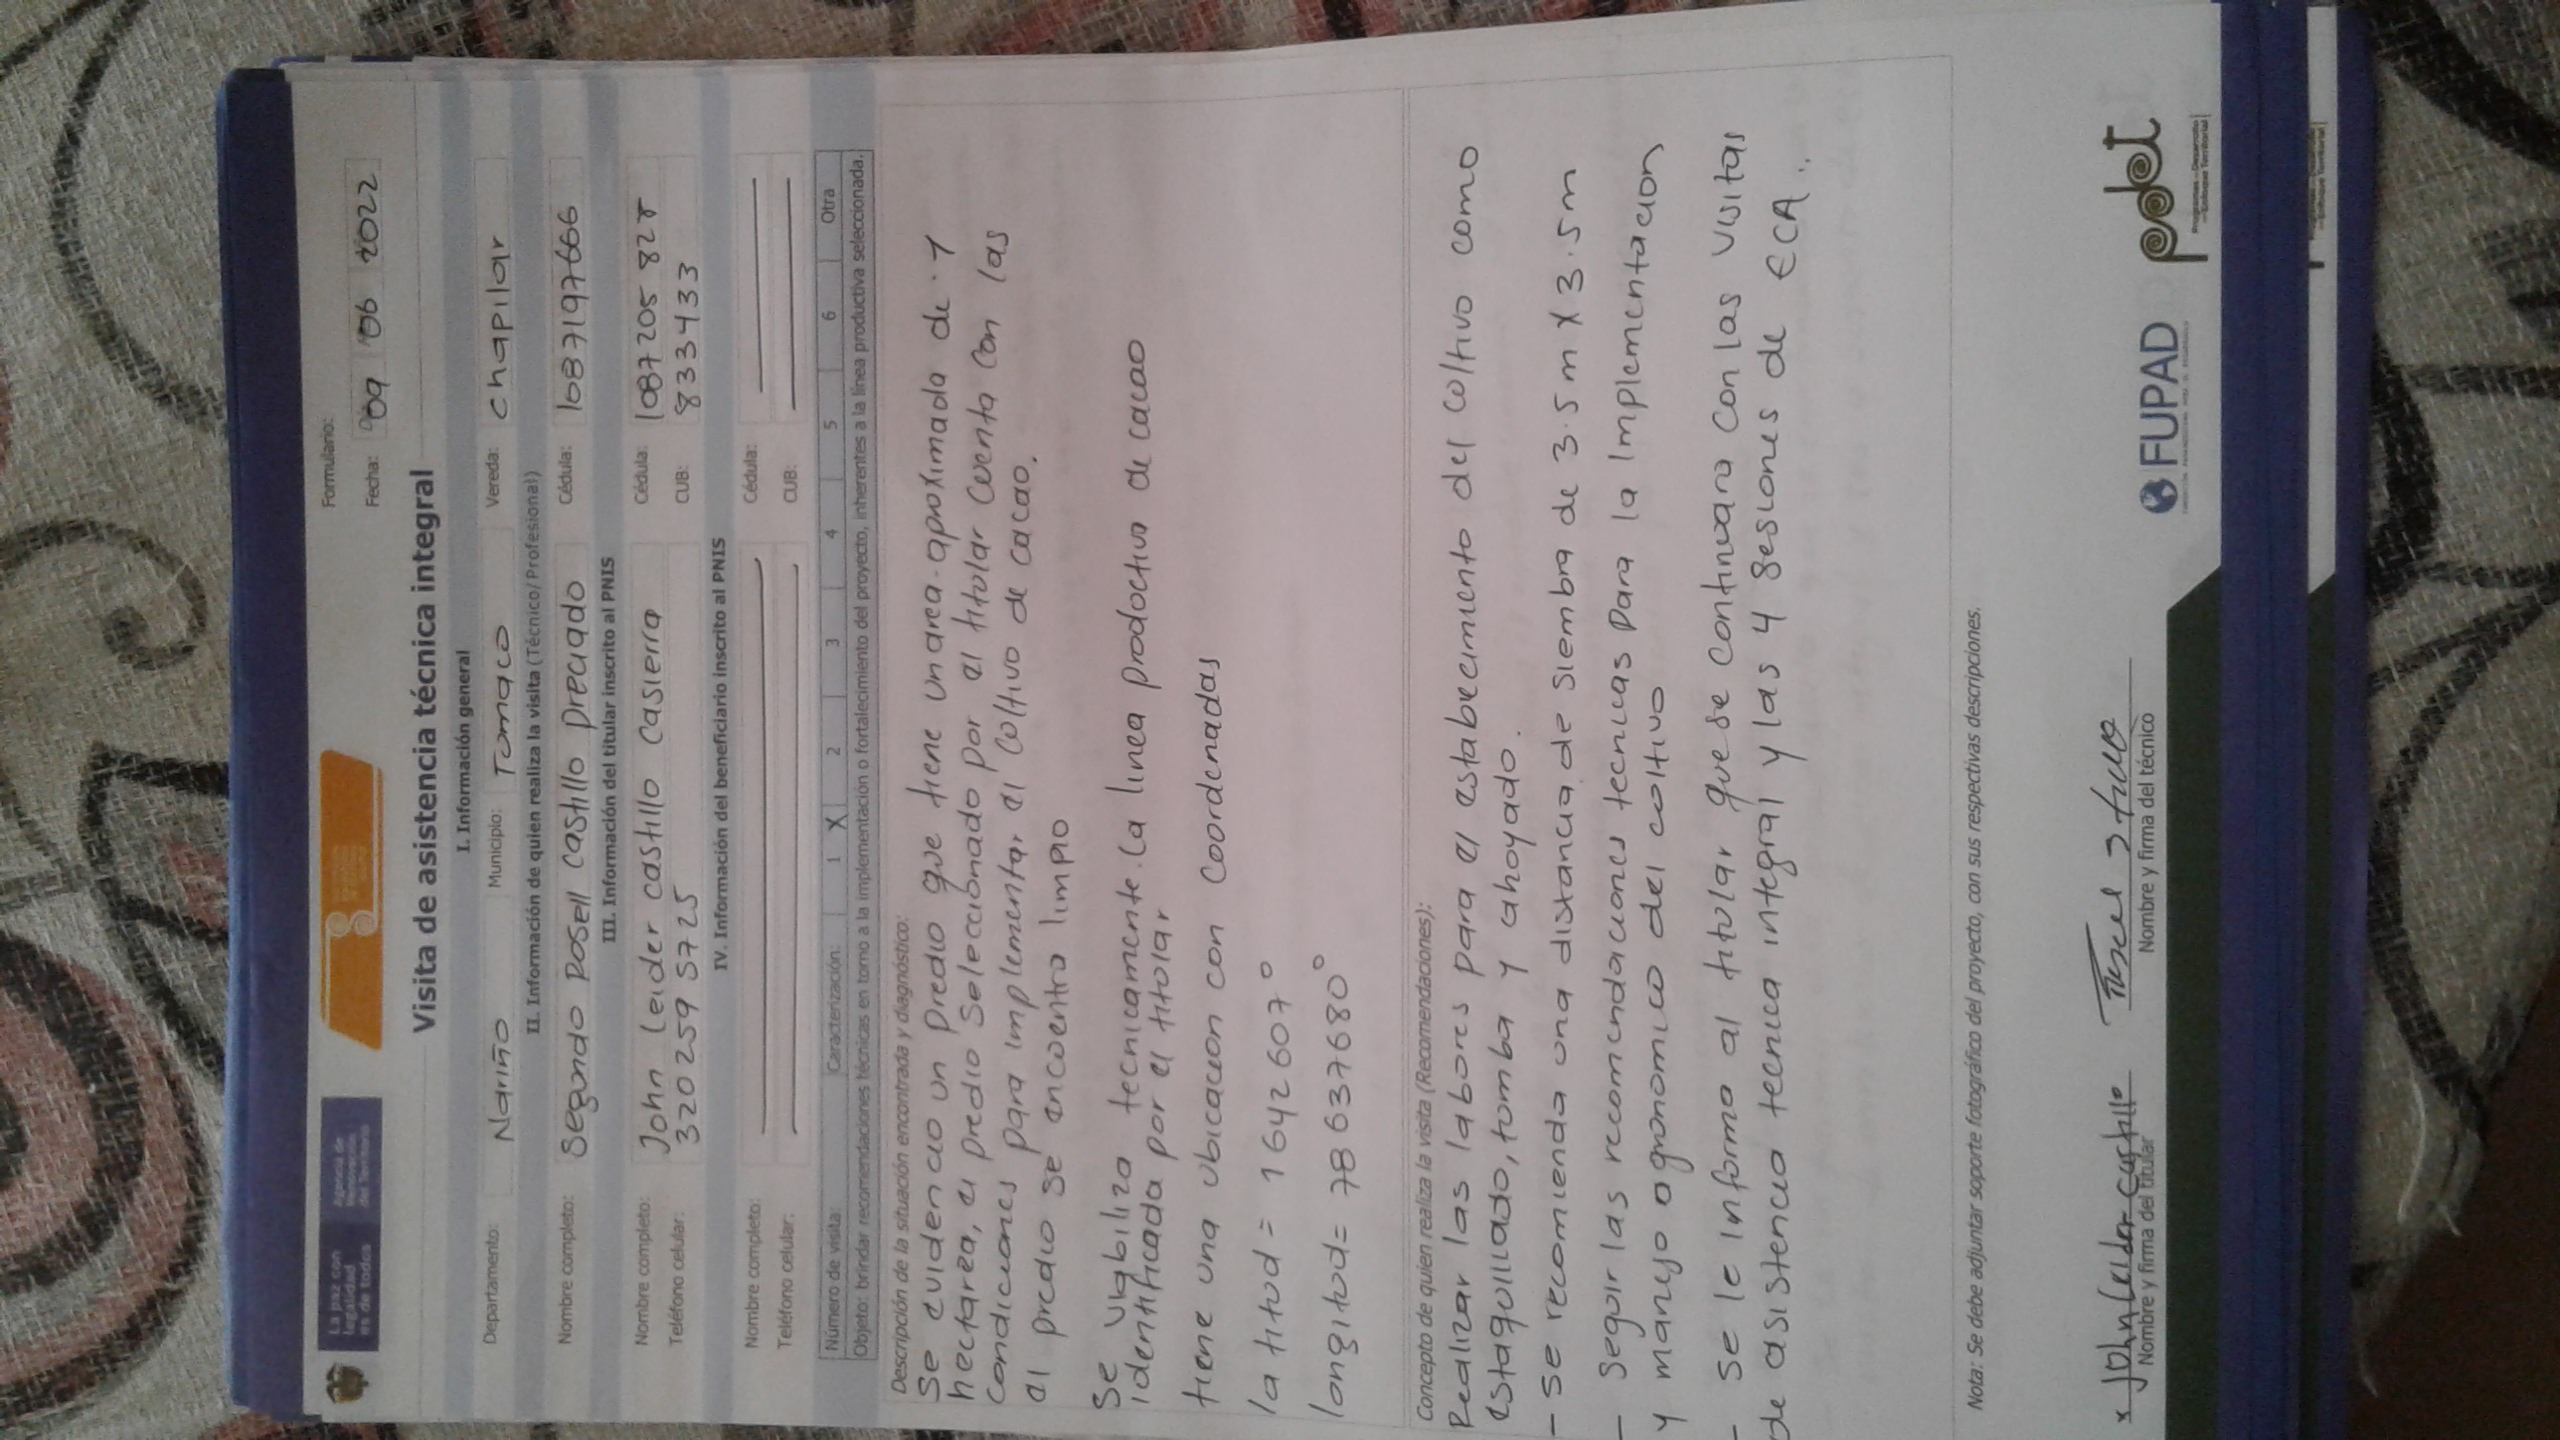 La paz con
legalidad
es de todos
Agencia de
Renovación
del Territorio
Formulario:
Fecha: 09 06 2022
Visita de asistencia técnica integral
I. Información general
Departamento: Nariño Municipio: Tumaco Vereda: chapilar
II. Información de quien realiza la visita (Técnico/Profesional)
Nombre completo: Segundo Posell Castillo preciado Cédula: 1087197666
III. Información del titular inscrito al PNIS
Nombre completo: John leider castillo Casierra Cédula:
Teléfono celular: 320 259 5725 CUB: 8333433
IV. Información del beneficiario inscrito al PNIS
Nombre completo: Cédula:
Teléfono celular: CUB:
Número de visita: Caracterización: 1 X 2 3 4 5 6 Otra
Objeto: brindar recomendaciones técnicas en torno a la implementación o fortalecimiento del proyecto, inherentes a la línea productiva seleccionada.
Descripción de la situación encontrada y diagnóstico:
Se evidencio un predio que tiene un area aproximada de 1
hectarea, el predio Seleccionado por el titular cuenta con las
condiciones para implementar el coltivo de cacao.
el predio se encuentra limpio
Se viabiliza tecnicamente la linea prodoctiva de cacao
identificada por el titolar
tiene una ubicacion con coordenadas
latitud = 1642607°
longitud = 78637680°
Concepto de quien realiza la visita (Recomendaciones):
Realizar las labores para el establecimento del coltivo como
estaquillado, tumba y ahoyado.
- se recomienda una distancia de siembra de 3.5m X 3.5m
- Seguir las recomendaciones tecnicas para la Implementacion
y manejo agronomico del coltivo
- se le informo al titular que se continuara con las visitas
de asistencia tecnica integral y las 4 sesiones de ECA.
Nota: Se debe adjuntar soporte fotográfico del proyecto, con sus respectivas descripciones.
x John leider castillo
Nombre y firma del titular Nombre y firma del técnico
FUPAD
pdet